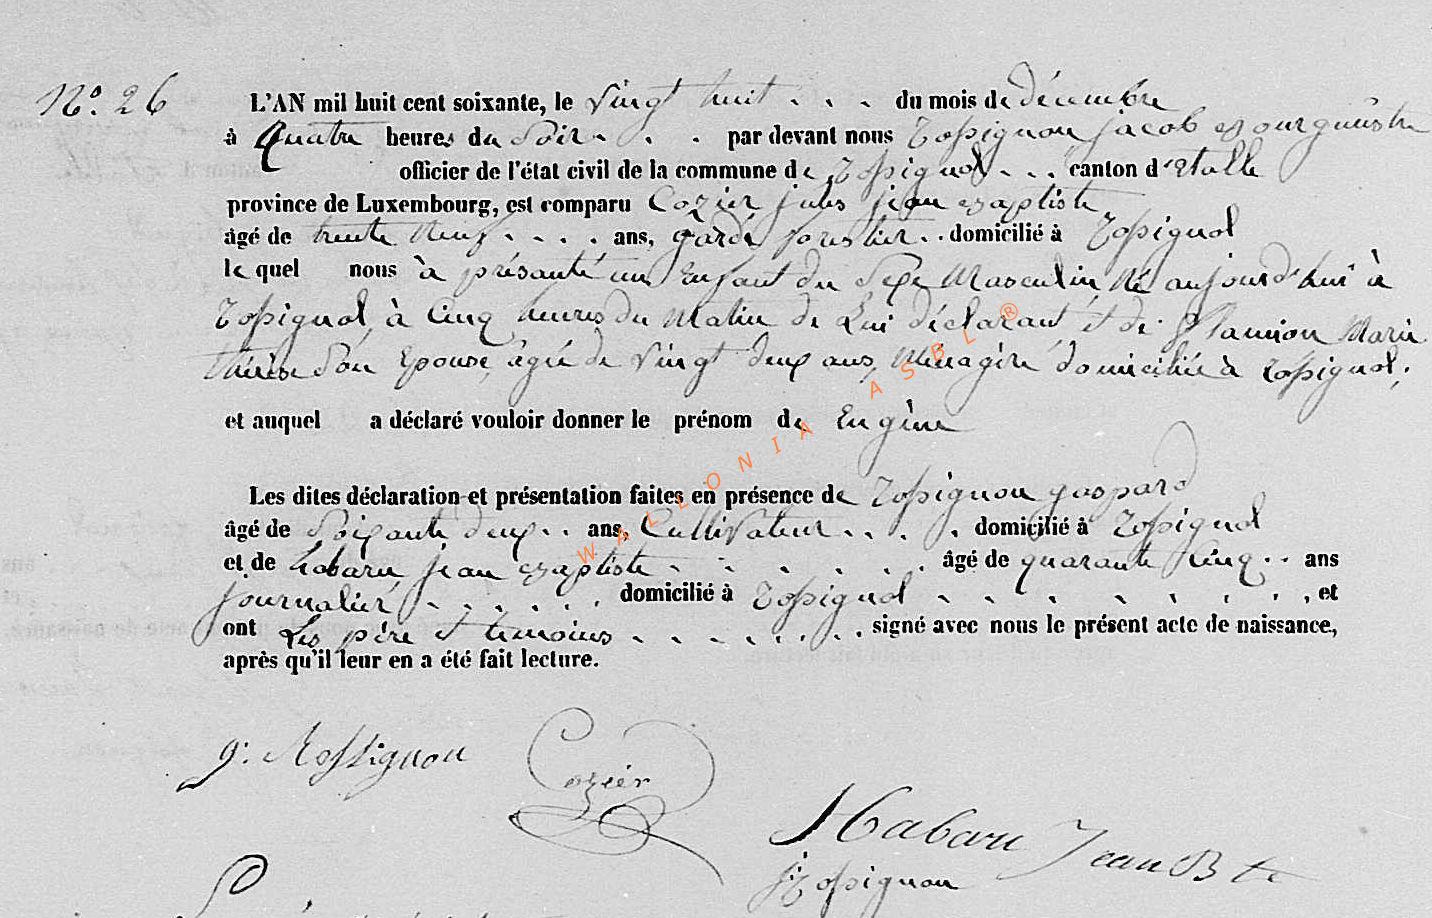 N.o 26
L'AN mil huit cent soixante, le vingt huit . . . du mois de décembre
à quatre heures du Soir . . . par devant nous Rossignon jacob Bourgmestre
officier de l'état civil de la commune de Rossignol . . . canton d'Etalle
province de Luxembourg, est comparu Cozier jules jean Baptiste
âgé de trente neuf . . . . ans, garde forestier . . domicilié à Rossignol
lequel nous à présanté un Enfant du Sexe Masculin, Né aujourd'hui à
Rossignol, à Cinq heures du Matin de Lui déclarant et de Marie
thérèse Son Epouse, agée de Vingt deux ans, Ménagère domiciliée à Rossignol,
et auquel a déclaré vouloir donner le prénom de Eugène
Les dites déclaration et présentation faites en présence de Rossignon gaspard
âgé de Soixante deux . . ans, Cultivateur . . . . domicilié à Rossignol
et de habaru jean Baptiste . . . . . . âgé de quarante Cinq . . ans
journalier . . . . . . domicilié à Rossignol . . . . . . . . , et
ont Les père et temoins . . . . . . . signé avec nous le présent acte de naissance,
après qu'il leur en a été fait lecture.
g. Rossignon
Cozier
Habaru Jean Bte
j Rossignon
WALLONIA ASBL ®